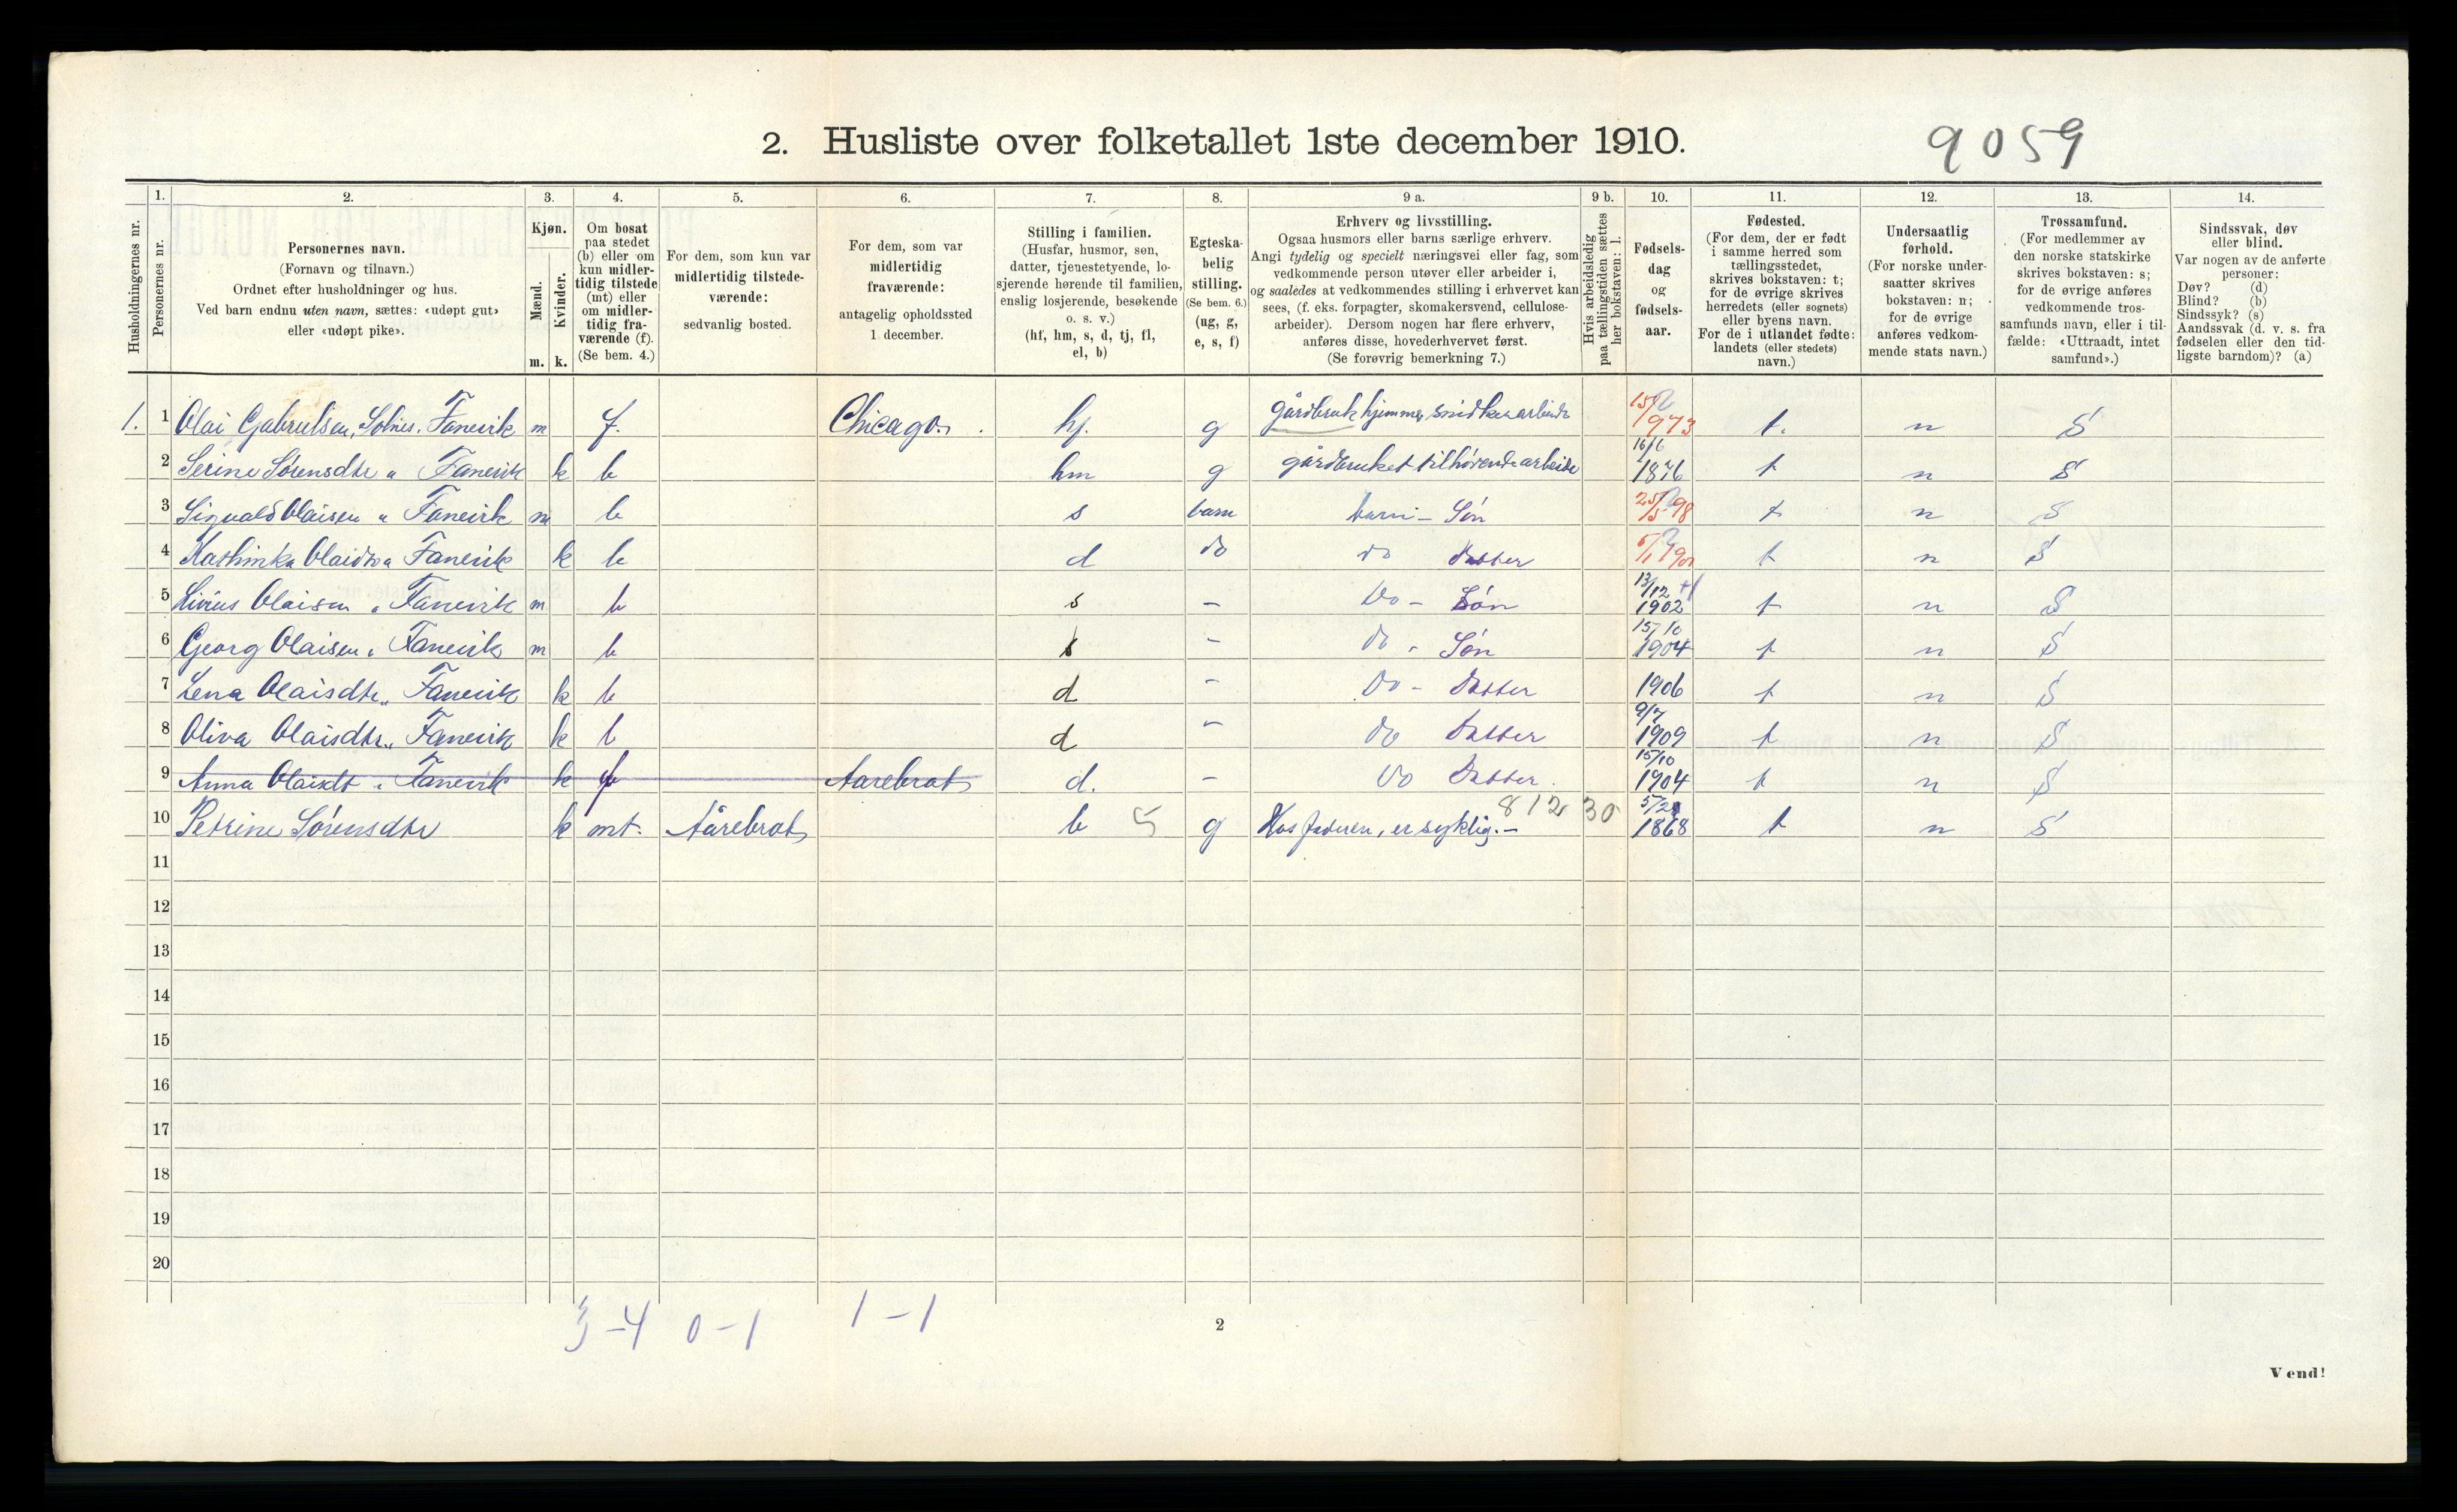 2. Husliste over folketallet 1ste december 1910.
9059
Husholdningernes nr.
1.
Personernes nr.
2.
Personernes navn.
(Fornavn og tilnavn.)
Ordnet efter husholdninger og hus.
Ved barn endnu uten navn, sættes: «udøpt gut»
eller «udøpt pike».
3.
Kjøn.
Mænd.
m.
Kvinder.
k.
4.
Om bosat
paa stedet
(b) eller om
kun midler-
tidig tilstede
(mt) eller
om midler-
tidig fra-
værende (f).
(Se bem. 4.)
5.
For dem, som kun var
midlertidig tilstede-
værende:
sedvanlig bosted.
6.
For dem, som var
midlertidig
fraværende:
antagelig opholdssted
1 december.
7.
Stilling i familien.
(Husfar, husmor, søn,
datter, tjenestetyende, lo-
sjerende hørende til familien,
enslig losjerende, besøkende
o. s. v.)
(hf, hm, s, d, tj, fl,
el, b)
8.
Egteska-
belig
stilling.
(Se bem. 6.)
(ug, g,
e, s, f)
9 a.
Erhverv og livsstilling.
Ogsaa husmors eller barns særlige erhverv.
Angi tydelig og specielt næringsvei eller fag, som
vedkommende person utøver eller arbeider i,
og saaledes at vedkommendes stilling i erhvervet kan
sees, (f. eks. forpagter, skomakersvend, cellulose-
arbeider). Dersom nogen har flere erhverv,
anføres disse, hovederhvervet først.
(Se forøvrig bemerkning 7.)
9 b.
Hvis arbeidsledig
paa tællingstiden sættes
her bokstaven: l.
10.
Fødsels-
dag
og
fødsels-
aar.
11.
Fødested.
(For dem, der er født
i samme herred som
tællingsstedet,
skrives bokstaven: t;
for de øvrige skrives
herredets (eller sognets)
eller byens navn.
For de i utlandet fødte:
landets (eller stedets)
navn.)
12.
Undersaatlig
forhold.
(For norske under-
saatter skrives
bokstaven: n;
for de øvrige
anføres vedkom-
mende stats navn.)
13.
Trossamfund.
(For medlemmer av
den norske statskirke
skrives bokstaven: s;
for de øvrige anføres
vedkommende tros-
samfunds navn, eller i til-
fælde: «Uttraadt, intet
samfund».)
14.
Sindssvak, døv
eller blind.
Var nogen av de anførte
personer:
Døv? (d)
Blind? (b)
Sindssyk? (s)
Aandssvak (d. v. s. fra
fødselen eller den tid-
ligste barndom)? (a)
1. 1 Olai Gabrielsen, Solnes. Fanevik m f. Chicago. hf. g gårdbruk hjemme, snidkerarbeide 15/2 1973 t. n S
2 Serine Sørensdtr " Fanevik k b hm g gårdbruket tilhørende arbeide 16/6 1876 t n S
3 Sigvald Olaisen " Fanevik m b s barn barn - Søn 25/5 98 t n S
4 Kathinka Olaidtr " Fanevik k b d do do Datter t n S
5 Livius Olaisen " Fanevik m b s - Do - Søn 13/12 1902 t n S
6 Georg Olaisen " Fanevik m b s - do - Søn 15/10 1904 t n S
7 Lena Olaisdtr " Fanevik k b d - Do - Datter 1906 t n S
8 Oliva Olaisdtr " Fanevik k b d - do Datter 9/7 1909 t n S
9 Anna Olaisdt " Fanevik k f Aarebrot d. - Do Datter 15/10 1904 t n S
10 Petrine Sørensdtr k mt. Aårebrot b 5 g Hos faderen, er syklig. - 812 30 5/2 1868 t n S
11
12
13
14
15
16
17
18
19
20
3-4 0-1 1-1
2
Vend!